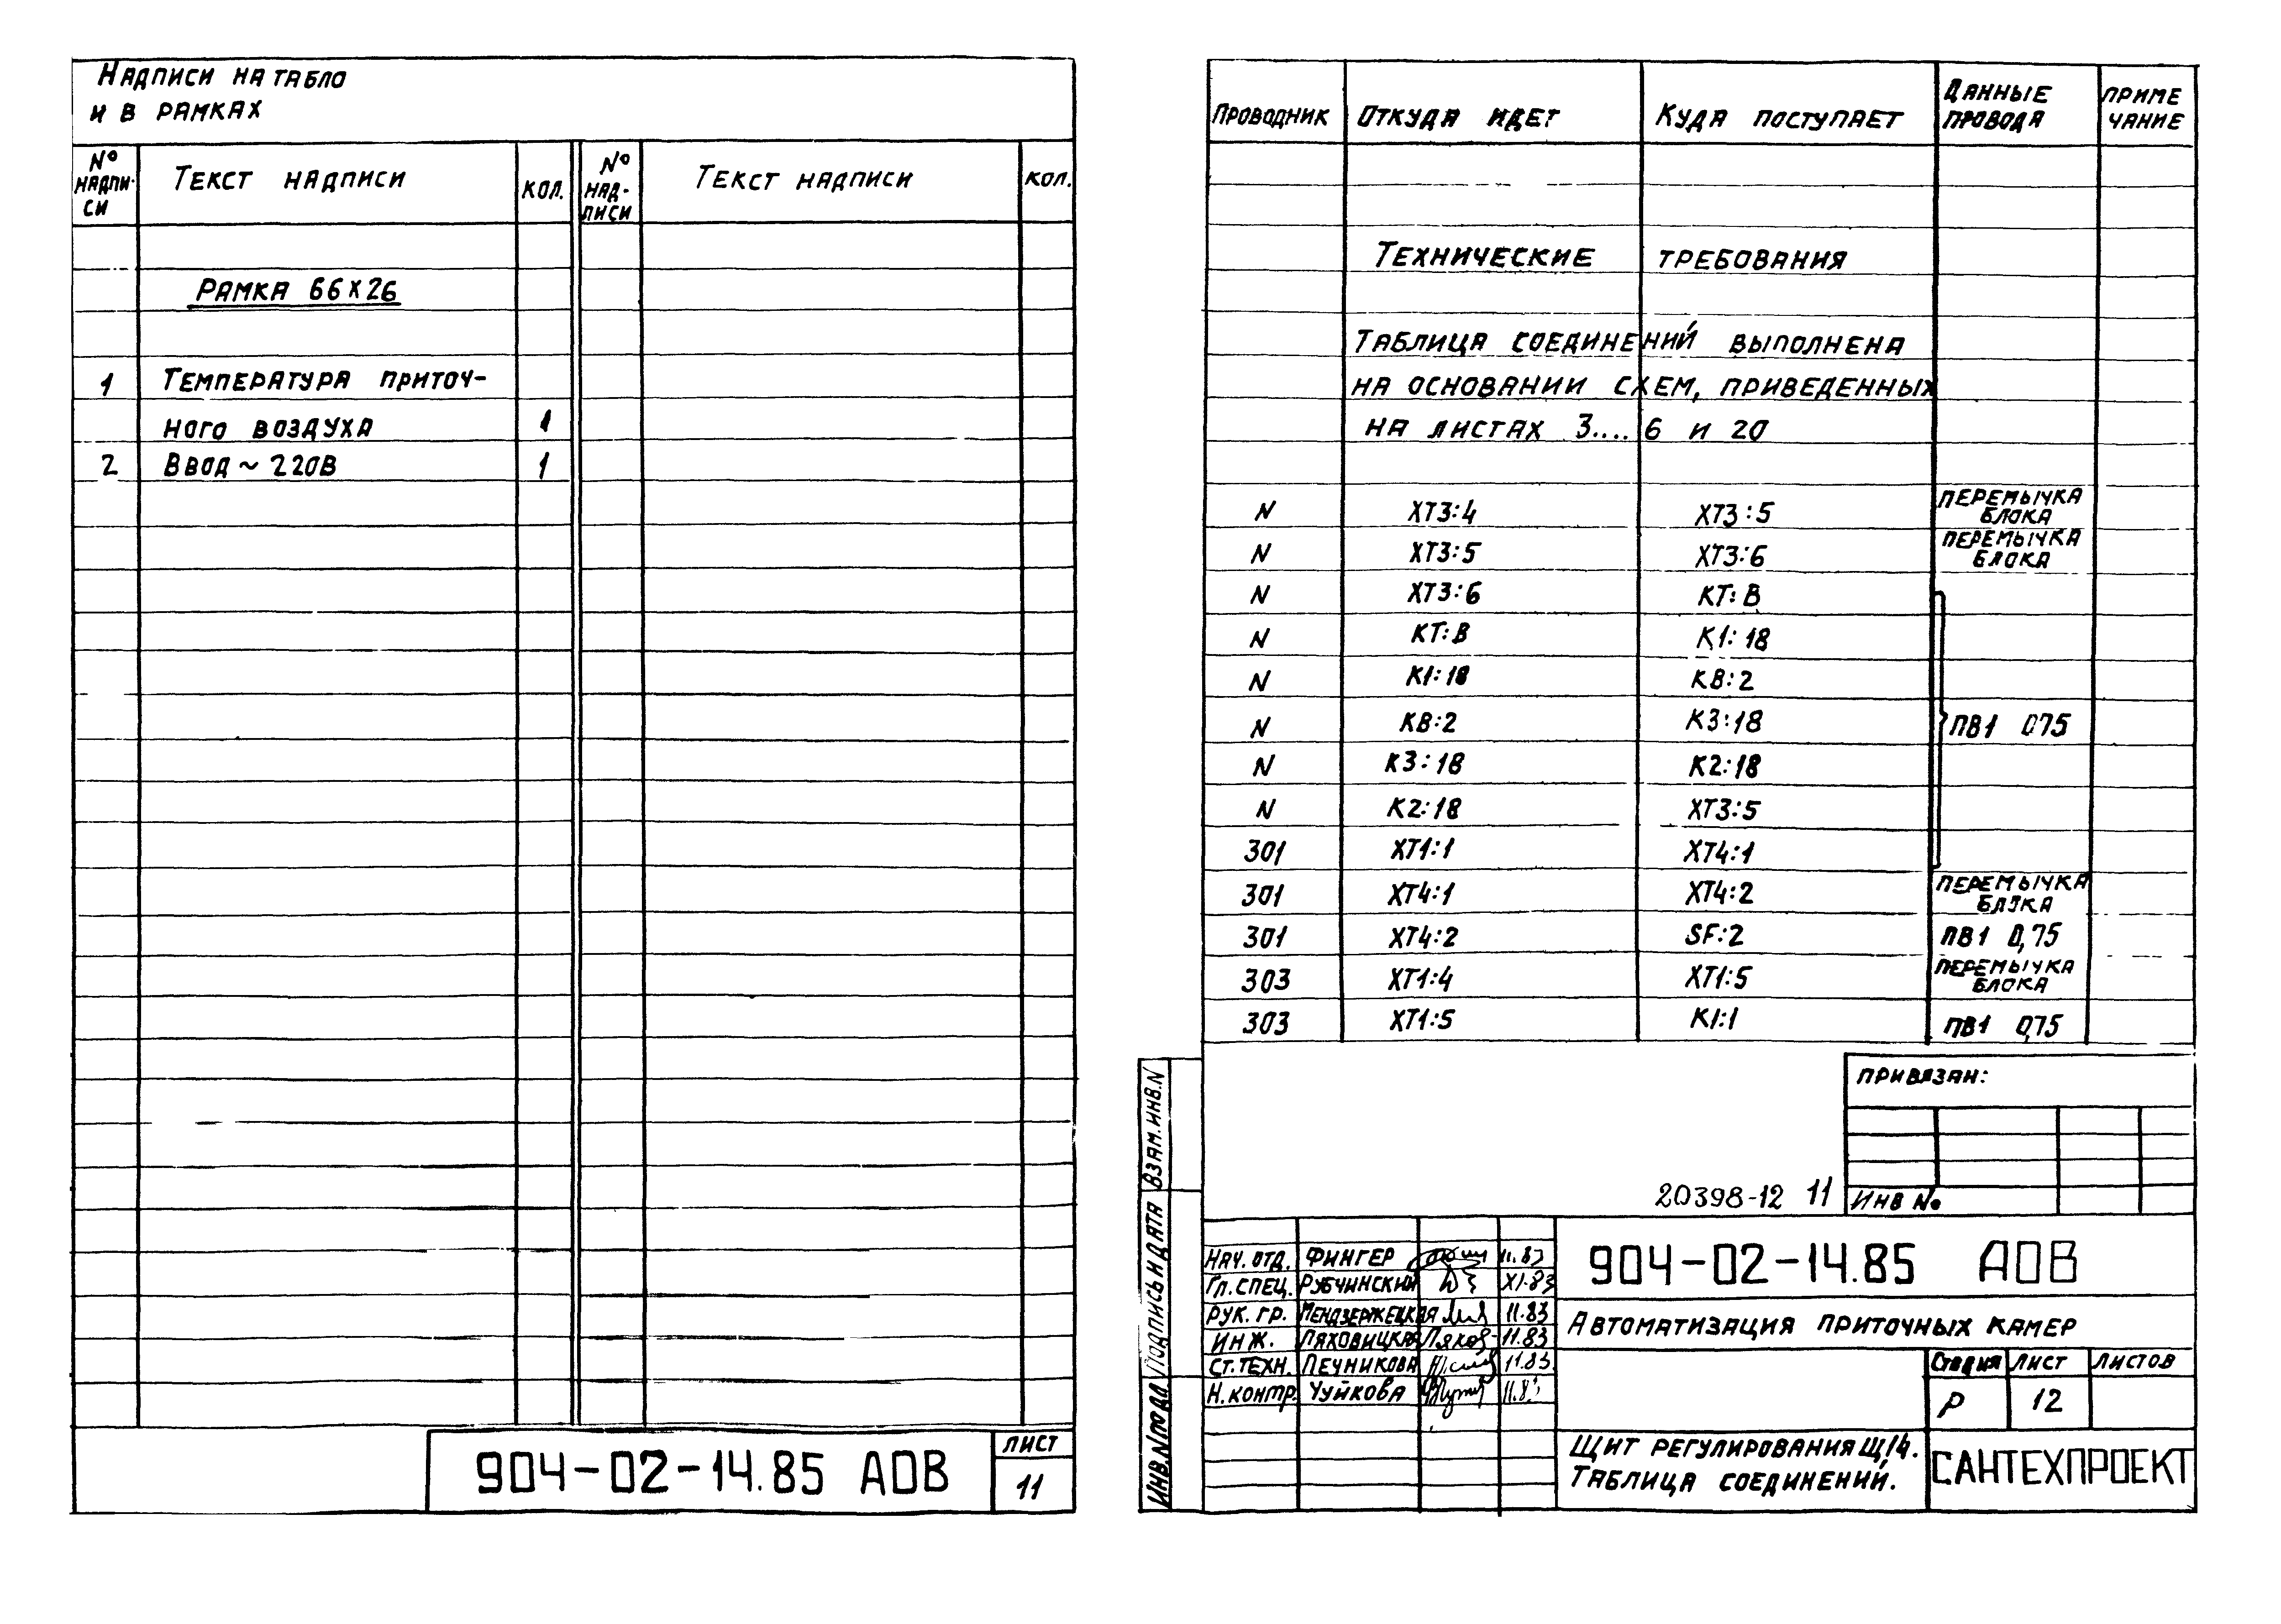 Надписи на табло
и в рамках
№ надпи-си Текст надписи кол. № над-писи Текст надписи кол.
Рамка 66х26
1 Температура приточ-
ного воздуха 1
2 Ввод ~ 220В 1
904-02-14.85 АОВ
лист
11
Проводник Откуда идет Куда поступает Данные провода Приме чание
Технические требования
Таблица соединений выполнена
на основании схем, приведенных
на листах 3.... 6 и 20
N ХТ3:4 ХТ3:5 перемычка блока
N ХТ3:5 ХТ3:6 перемычка блока
N ХТ3:6 КТ:В
N КТ:В К1:18
N К1:18 КВ:2
N КВ:2 К3:18 ПВ1 075
N К3:18 К2:18
N К2:18 ХТ3:5
301 ХТ1:1 ХТ4:1
301 ХТ4:1 ХТ4:2 перемычка блока
301 ХТ4:2 SF:2 ПВ1 0,75
303 ХТ1:4 ХТ1:5 перемычка блока
303 ХТ1:5 К1:1 ПВ1 0,75
Привязан:
20398-12 11
Инв №
Взам. инв. N
Подпись и дата
Инв. N подл
Нач. отд. Фингер 11.83
Гл. спец. Рубчинский XI.83
Рук. гр. Мендзержецкая 11.83
Инж. Ляховицкая 11.83
Ст. техн. Печникова 11.83
Н. контр. Чуйкова 11.83
904-02-14.85 АОВ
Автоматизация приточных камер
Стадия лист листов
Р 12
Щит регулирования Щ14.
Таблица соединений.
САНТЕХПРОЕКТ